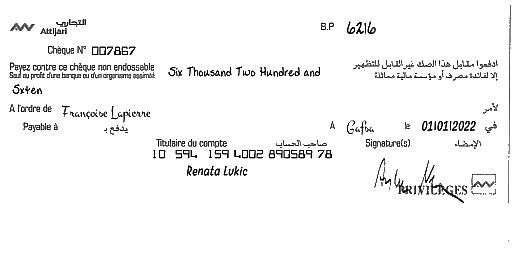 التجاري
Attijari
B.P 6216
Chèque N° 007867
Payez contre ce chèque non endossable
Seul au profit d'une banque ou d'un organisme assimilé
Six Thousand Two Hundred and
ادفعوا مقابل هذا الصك غير القابل للتظهير
إلا لفائدة مصرف أو مؤسسة مالية مماثلة
Sixten
A l'ordre de Françoise Lapierre لأمر
Payable à يدفع بـ A Gafsa le 01/01/2022 في
Titulaire du compte صاحب الحساب Signature(s) الإمضاء
10 594 159 4002 890589 78
Renata Lukic
PRIVILEGES